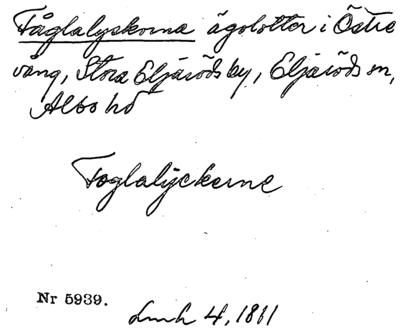 Fåglalyckorna ägolotter i Östre
vång, Stora Eljaröds by, Eljaröds sn,
Albo hd
Foglalyckerne
Nr 5939.
Lmh 4, 1811